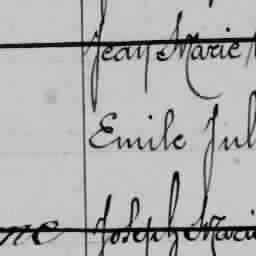 Jean Marie
Emile Jul
ne Joseph Marie